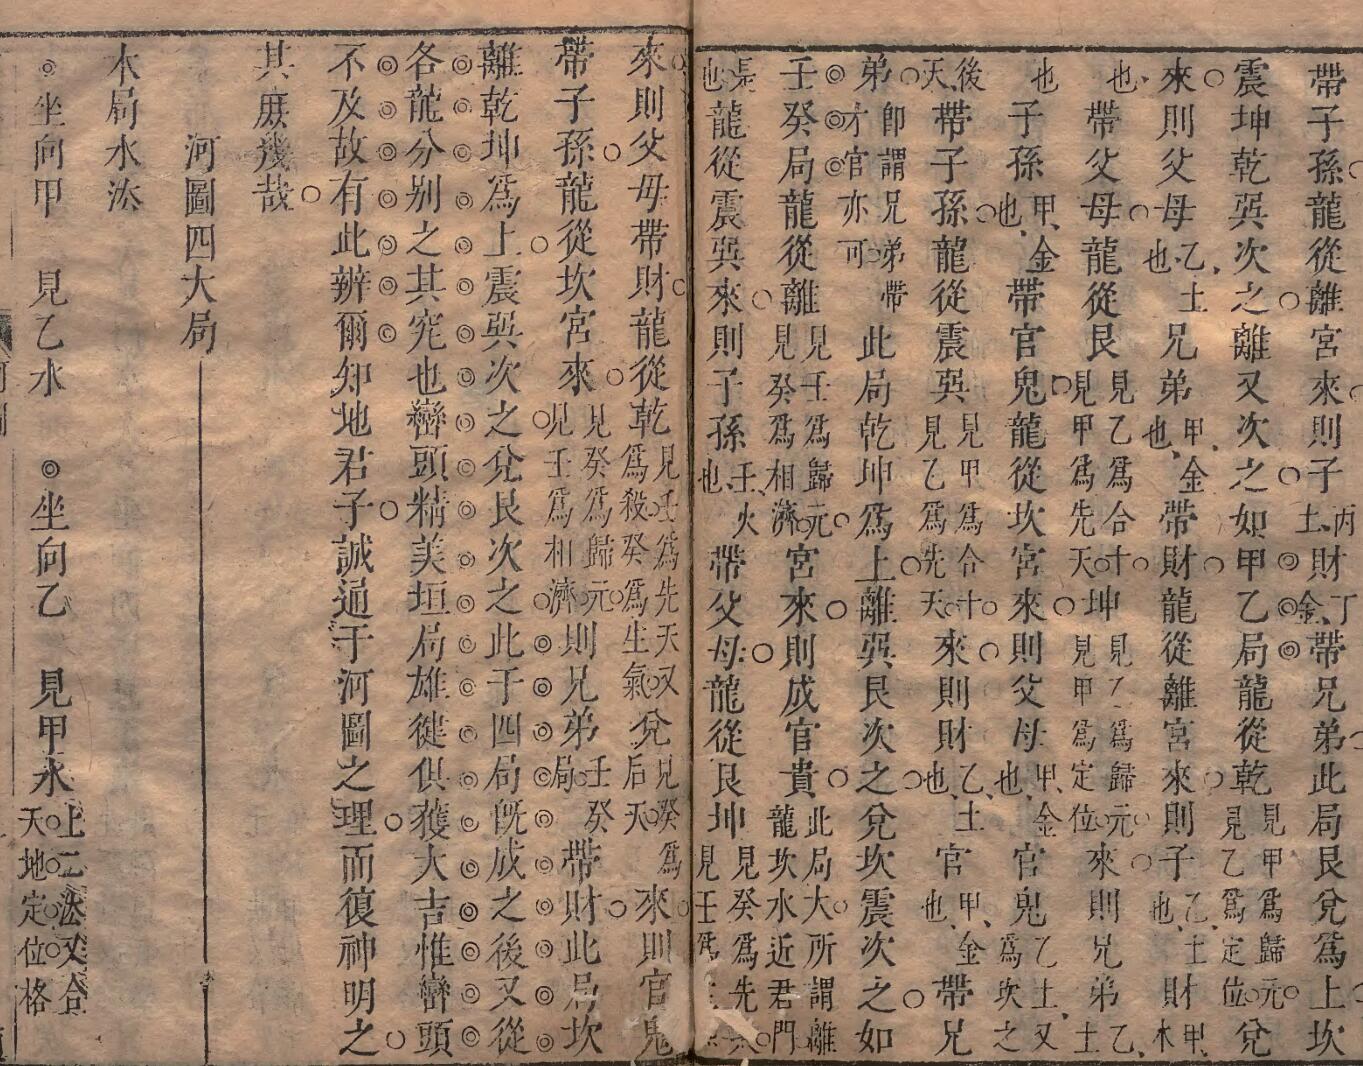 帶子孫龍從離宮來則子丙土財丁金帶兄弟此局艮兌爲上坎
震坤乾巽次之離又次之如甲乙局龍從乾見甲爲歸元見乙爲定位兌
來則父母乙土也兄弟甲金也帶財龍從離宮來則子乙土也財甲木
也帶父母龍從艮見乙爲合十見甲爲先天坤見乙爲歸元見甲爲定位來則兄弟乙土
也子孫甲金也帶官鬼龍從坎宮來則父母甲金也官鬼乙土又爲坎之
後天帶子孫龍從震巽見甲爲合十見乙爲先天來則財乙土也官甲金也帶兄
弟即謂兄弟帶才官亦可此局乾坤爲上離巽艮次之兌坎震次之如
壬癸局龍從離見壬爲歸元見癸爲相濟宮來則成官貴此局大所謂離龍坎水近君門
是也龍從震巽來則子孫壬火也帶父母龍從艮坤見癸爲先天見壬爲
來則父母帶財龍從乾見壬爲先天又爲殺癸爲生氣兌見癸爲后天來則官鬼
帶子孫龍從坎宮來見癸爲歸元見壬爲相濟則兄弟壬癸局帶財此局坎
離乾坤爲上震巽次之兌艮次之此于四局旣成之後又從
各龍分别之其究也巒頭精美垣局雄健俱獲大吉惟巒頭
不及故有此辨爾知地君子誠通于河圖之理而復神明之
其庶幾哉
河圖四大局
木局水法
坐向甲 見乙水 坐向乙 見甲水上二法又合天地定位格